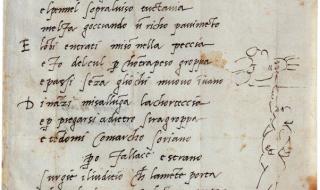 el pennel sopraluiso tuctavia
mel fa gocciando u richo pavimeto
E lobi entrati miso nella peccia
e fo del cul p chotrapeso groppa
e passi seza gliochi muovo ivano
D inazi misalluga lachorteccia
e p piegarsi adietro siragroppa
e tedomi comarcho soriano
po fallace e strano
surgie iliuditio ch lamete porta